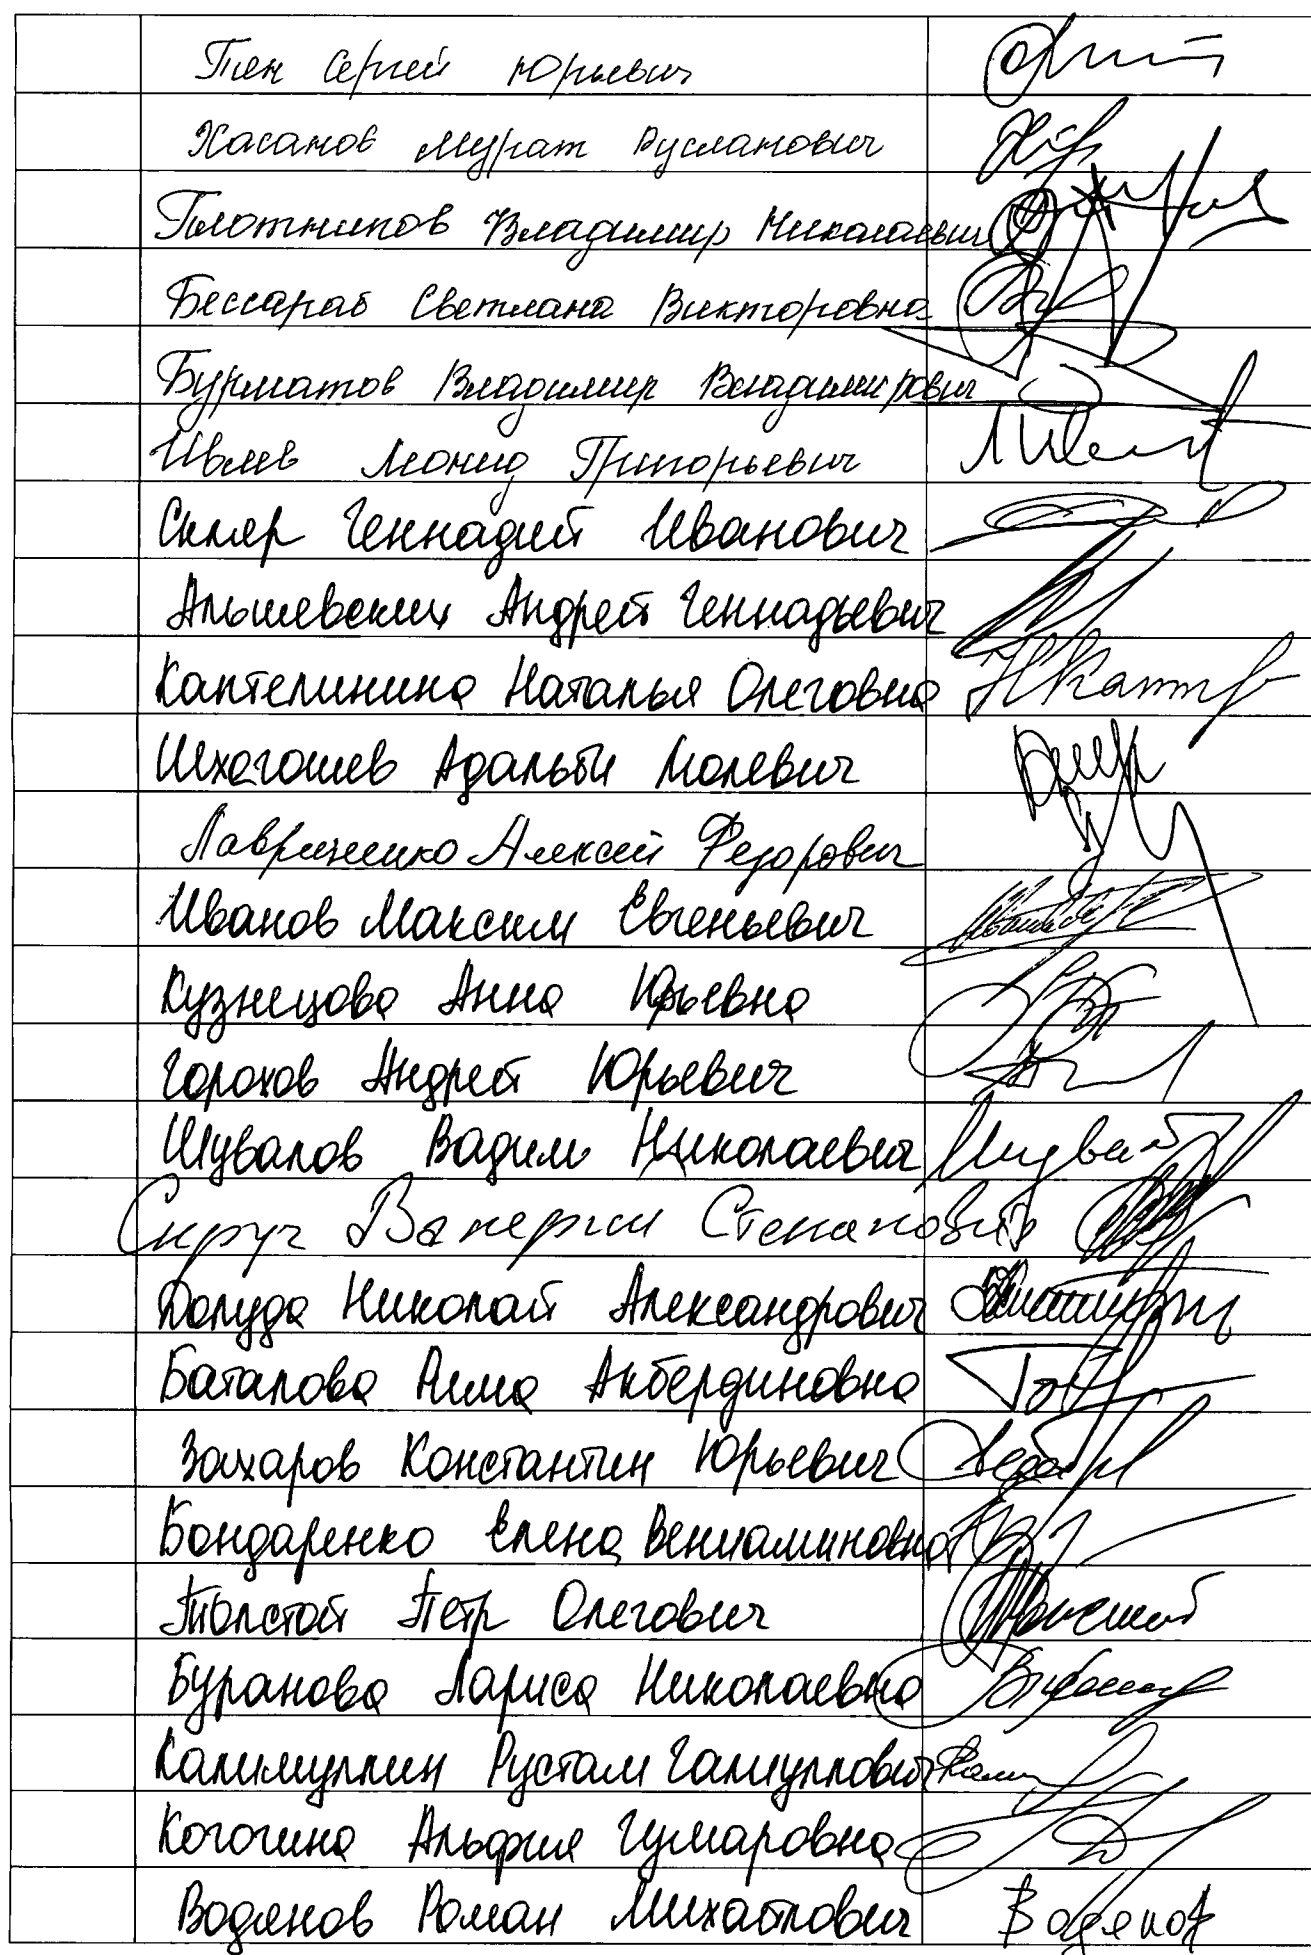 Тен Сергей Юрьевич
Хасанов Мурат Русланович
Плотников Владимир Николаевич
Бессараб Светлана Викторовна
Бурматов Владимир Владимирович
Ивлев Леонид Григорьевич
Скляр Геннадий Иванович
Альшевских Андрей Геннадьевич
Каптелинина Наталья Олеговна
Шхагошев Адальби Люлевич
Лавриненко Алексей Федорович
Иванов Максим Евгеньевич
Кузнецова Анна Юрьевна
Горохов Андрей Юрьевич
Шувалов Вадим Николаевич
Скруч Валерий Степанович
Долуда Николай Александрович
Баталова Рима Акбердиновна
Захаров Константин Юрьевич
Бондаренко Елена Вениаминовна
Толстой Петр Олегович
Буранова Лариса Николаевна
Калимуллин Рустам Галиуллович
Когогина Альфия Гумаровна
Водянов Роман Михайлович Водянов